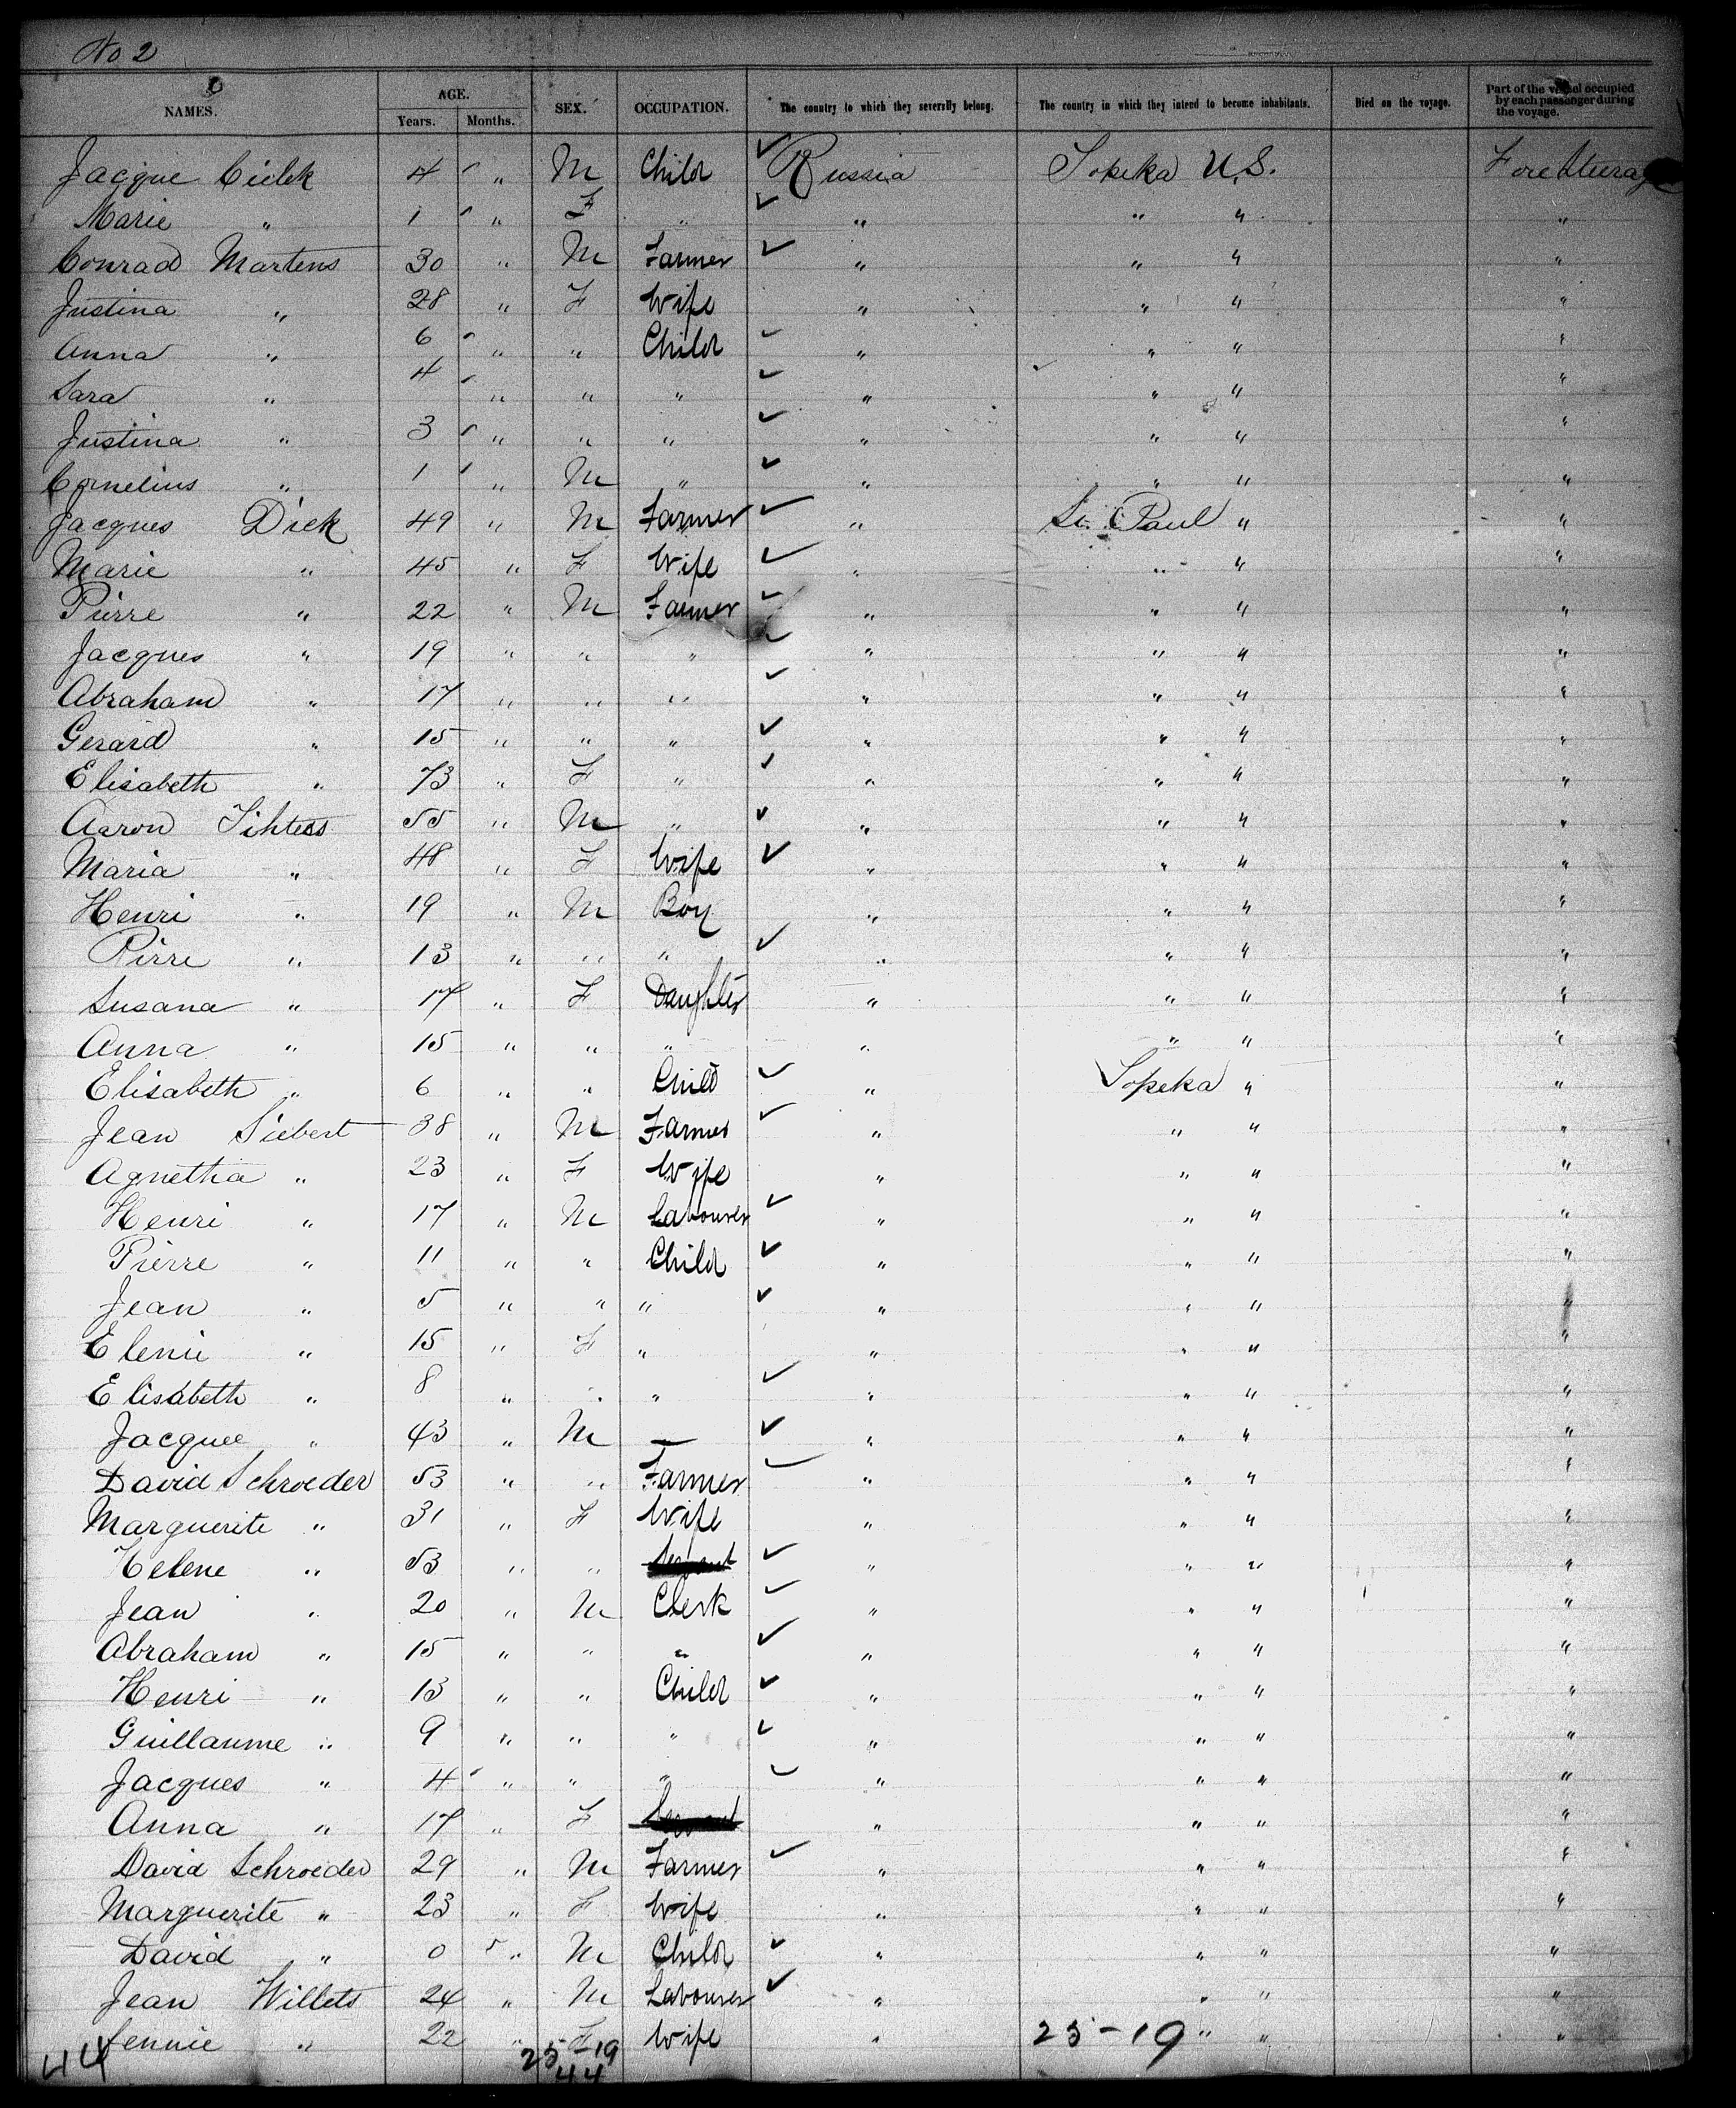 No 2
NAMES. AGE. Years. Months. SEX. OCCUPATION. The country to which they severally belong. The country in which they intend to become inhabitants. Died on the voyage. Part of the vessel occupied by each passenger during the voyage.
Jacque 4 " M Child Russia Topeka U.S. Fore Steerage
Marie " 1 " F " " " " "
Conrad Martens 30 " M Farmer " " " "
Justina " 28 " F Wife " " " "
Anna " 6 " " Child " " " "
Sara " 4 " " " " " " "
Justina " 3 " " " " " " "
Cornelius " 1 " M " " " " "
Jacques Dick 49 " M Farmer " St. Paul " "
Marie " 45 " F Wife " " " "
Pierre " 22 " M Farmer " " " "
Jacques " 19 " " " " " " "
Abraham " 17 " " " " " " "
Gerard " 15 " " " " " " "
Elisabeth " 73 " F " " " " "
Aaron 55 " M " " " " "
Maria " 48 " F Wife " " " "
Henri " 19 " M Boy " " " "
Pirre " 13 " " " " " " "
Susana " 17 " F Daughter " " " "
Anna " 15 " " " " " " "
Elisabeth " 6 " " Child " Topeka " "
Jean Siebert 38 " M Farmer " " " "
Agnetha " 23 " F Wife " " " "
Henri " 17 " M Labourer " " " "
Pierre " 11 " " Child " " " "
Jean " 5 " " " " " " "
Elenie " 15 " F " " " " "
Elisabeth " 8 " " " " " " "
Jacque " 43 " M — " " " "
David Schroeder 53 " " Farmer " " " "
Marguerite " 31 " F Wife " " " "
Helene " 53 " " " " " "
Jean " 20 " M Clerk " " " "
Abraham " 15 " " " " " " "
Henri " 13 " " Child " " " "
Guillaume " 9 " " " " " " "
Jacques " 4 " " " " " " "
Anna " 17 " F " " " "
David Schroeder 29 " M Farmer " " " "
Marguerite " 23 " F Wife " " " "
David " 0 5 " M Child " " " "
Jean Willets 24 " M Labourer " " " "
Jennie " 22 " F Wife " 25-19 " " "
44 25-19
44